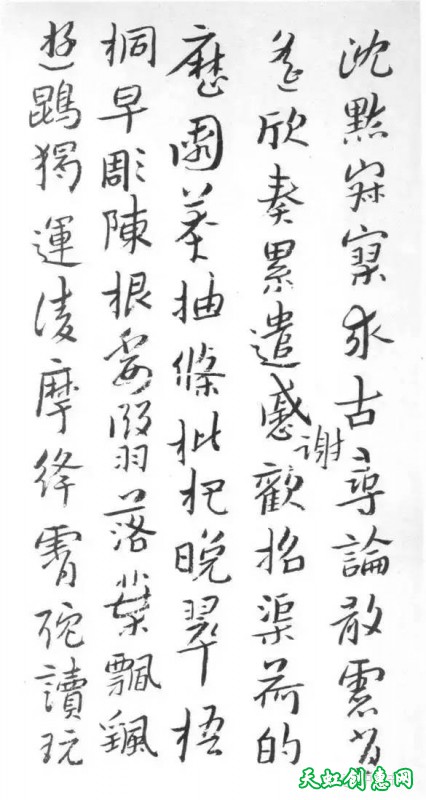 沈默寂寥求古尋論散慮逍
遙欣奏累遣慼謝歡招渠荷的
歷園莽抽條枇杷晚翠梧
桐早彫陳根委翳落葉飄颻
遊鵾獨運凌摩絳霄耽讀玩
天虹创意网